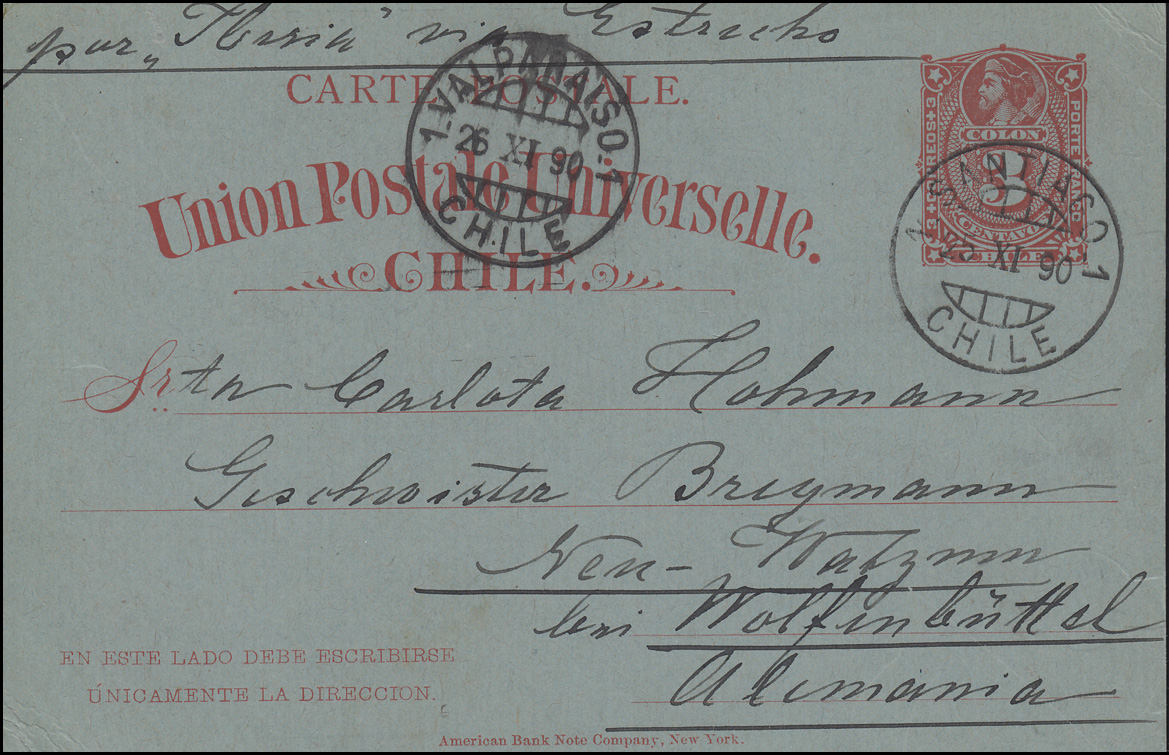 por „Iberia" via Estrecho
CARTE POSTALE.
Union Postale Universelle.
CHILE.
CORREOS 3
PORTE FRANCO 3
COLON
3
CENTAVOS
CHILE
1-VALPARAISO-1
26 XI 90
CHILE
SANTIAGO 1
25 XI 90
CHILE
Srta Carlota Hohmann
Geschwister Breymann
Neu-Watzum
bei Wolfenbüttel
Alemania
EN ESTE LADO DEBE ESCRIBIRSE
ÚNICAMENTE LA DIRECCION.
American Bank Note Company, New York.